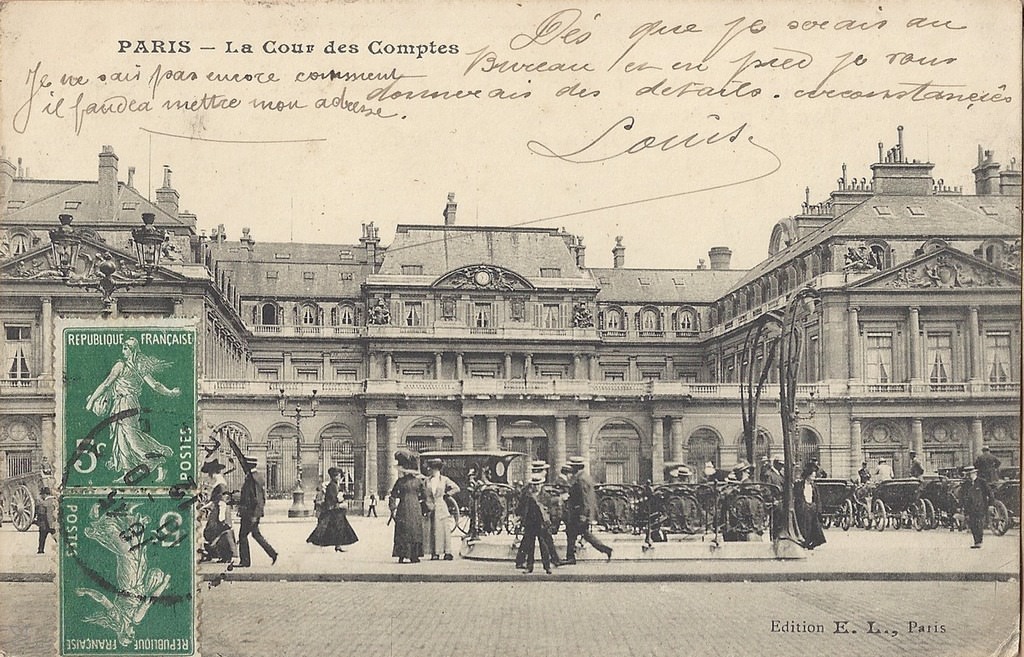 PARIS – La Cour des Comptes
Je ne sais pas encore comment
il faudra mettre mon adresse.
Dès que je serais au
Bureau et en pied je vous
donnerais des details. circonstanciés
Louis.
REPUBLIQUE FRANÇAISE
5c
POSTES
POSTES
5c
REPUBLIQUE FRANÇAISE
Edition E. L., Paris